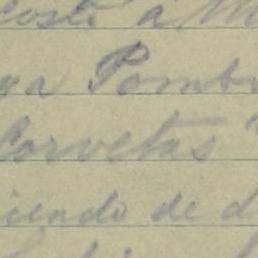 coste á M
ga Pombo
Corvetas "
iendo de d